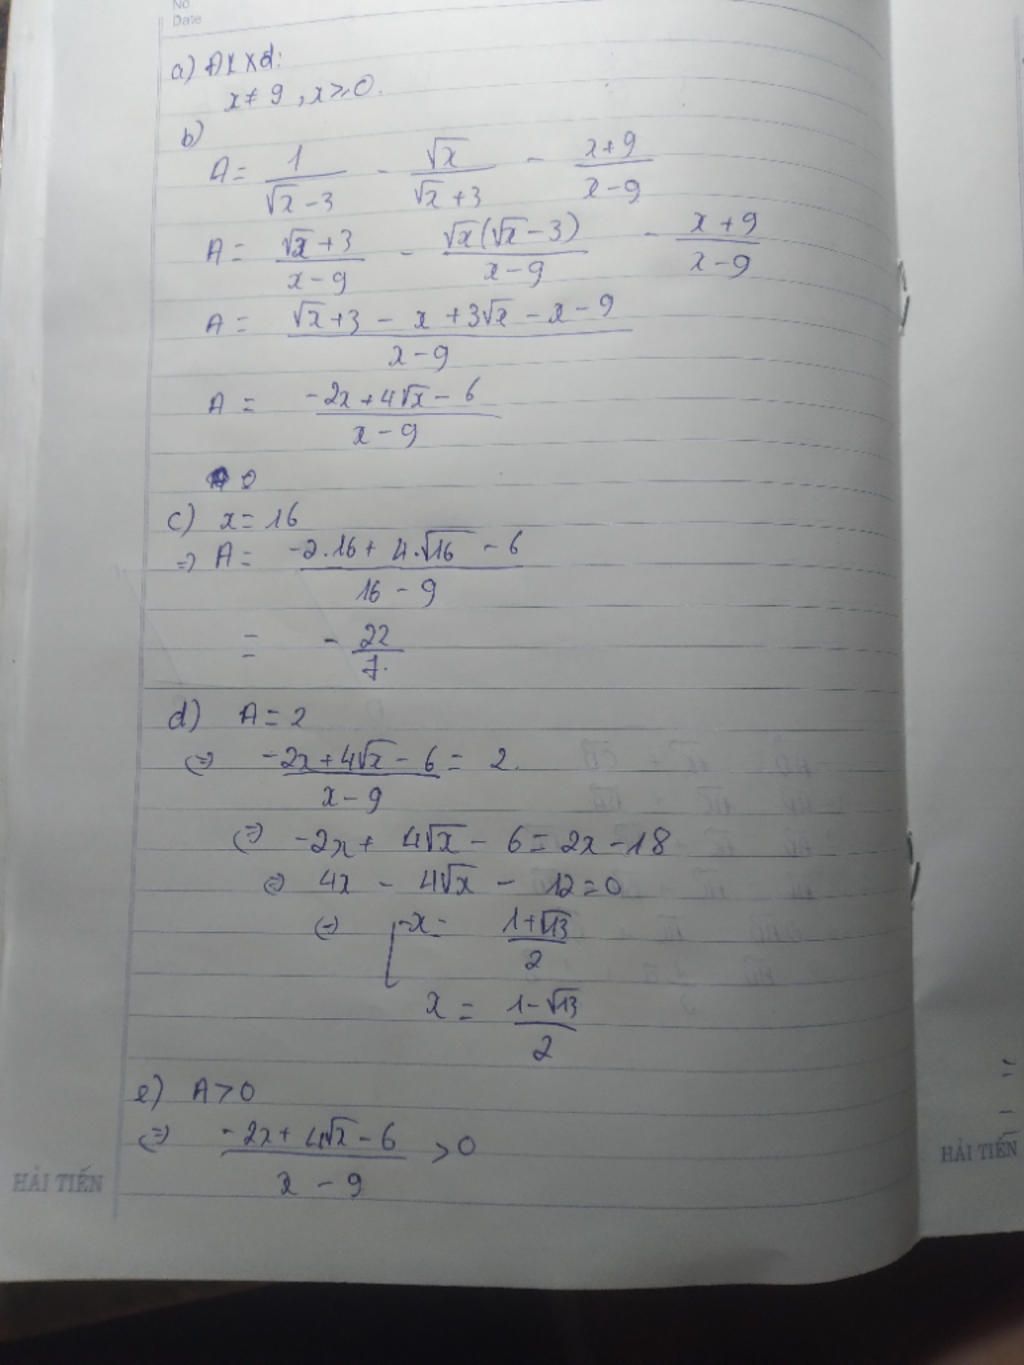 No
Date
a) ĐKXĐ:
x ≠ 9, x ≥ 0.
b)
A = 1/(√x - 3) - √x/(√x + 3) - (x+9)/(x-9)
A = (√x + 3)/(x-9) - √x(√x - 3)/(x-9) - (x+9)/(x-9)
A = (√x + 3 - x + 3√x - x - 9)/(x-9)
A = (-2x + 4√x - 6)/(x-9)
c) x = 16
=> A = (-2.16 + 4.√16 - 6)/(16 - 9)
= - 22/7.
d) A = 2
(=) (-2x + 4√x - 6)/(x-9) = 2.
(=) -2x + 4√x - 6 = 2x - 18
(=) 4x - 4√x - 12 = 0
(=) [ x = (1+√13)/2
x = (1-√13)/2
e) A > 0
(=) (-2x + 4√x - 6)/(x - 9) > 0
HẢI TIẾN
HẢI TIẾN